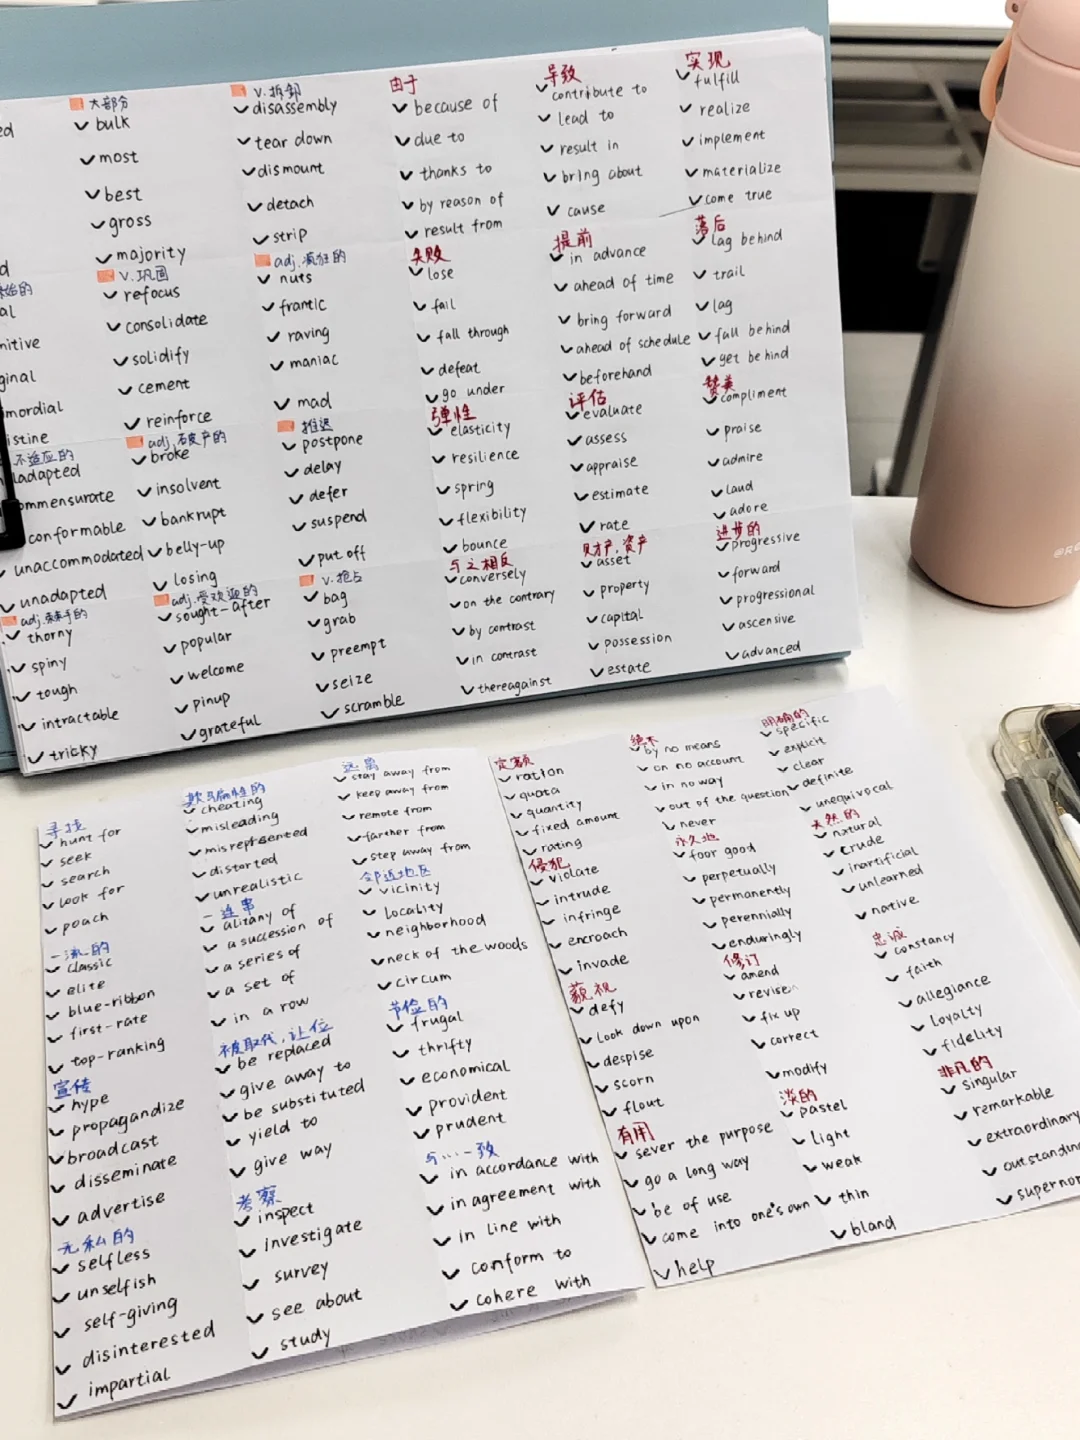 大部分
bulk
most
best
gross
majority
v.巩固
refocus
consolidate
solidify
cement
reinforce
adj.破产的
broke
insolvent
bankrupt
belly-up
losing
adj.受欢迎的
sought-after
popular
welcome
pinup
grateful
不适应的
conformable
unaccommodated
unadapted
adj.棘手的
thorny
spiny
tough
intractable
tricky
v.拆卸
disassembly
tear down
dismount
detach
strip
adj.疯狂的
nuts
frantic
raving
maniac
mad
推迟
postpone
delay
defer
suspend
put off
v.抢占
bag
grab
preempt
seize
scramble
由于
because of
due to
thanks to
by reason of
result from
失败
lose
fail
fall through
defeat
go under
弹性
elasticity
resilience
spring
flexibility
bounce
与之相反
conversely
on the contrary
by contrast
in contrast
thereagainst
导致
contribute to
lead to
result in
bring about
cause
提前
in advance
ahead of time
bring forward
ahead of schedule
beforehand
评估
evaluate
assess
appraise
estimate
rate
财产,资产
asset
property
capital
possession
estate
实现
fulfill
realize
implement
materialize
come true
落后
lag behind
trail
lag
fall behind
get behind
赞美
compliment
praise
admire
laud
adore
进步的
progressive
forward
progressional
ascensive
advanced
寻找
hunt for
seek
search
look for
poach
一流的
classic
elite
blue-ribbon
first-rate
top-ranking
宣传
hype
propagandize
broadcast
disseminate
advertise
无私的
selfless
unselfish
self-giving
disinterested
impartial
欺骗性的
cheating
misleading
misrepresented
distorted
unrealistic
一连串
alitany of
a succession of
a series of
a set of
in a row
被取代,让位
be replaced
give away to
be substituted
yield to
give way
考察
inspect
investigate
survey
see about
study
远离
stay away from
keep away from
remote from
farther from
step away from
邻近地区
vicinity
locality
neighborhood
neck of the woods
circum
节俭的
frugal
thrifty
economical
provident
prudent
与…一致
in accordance with
in agreement with
in line with
conform to
cohere with
定额
ration
quota
quantity
fixed amount
rating
侵犯
violate
intrude
infringe
encroach
invade
藐视
defy
look down upon
despise
scorn
flout
有用
sever the purpose
go a long way
be of use
come into one's own
help
绝不
by no means
on no account
in no way
out of the question
never
永久地
foor good
perpetually
permanently
perennially
enduringly
修订
amend
revise
fix up
correct
modify
淡的
pastel
light
weak
thin
bland
明确的
specific
explicit
clear
definite
unequivocal
天然的
natural
crude
inartificial
unlearned
native
忠诚
constancy
faith
allegiance
loyalty
fidelity
非凡的
singular
remarkable
extraordinary